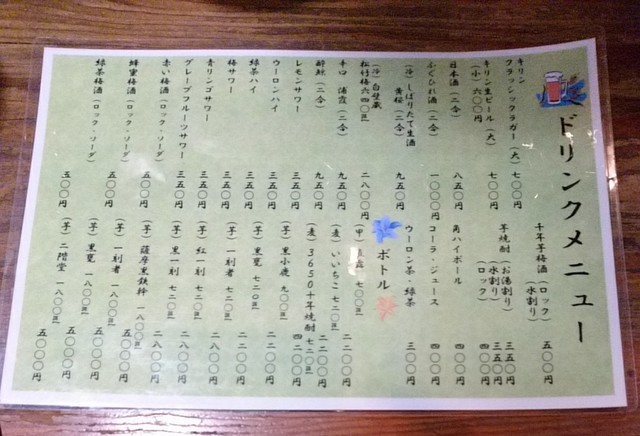 ドリンクメニュー
キリン
クラッシックラガー(大) 七〇〇円
キリン生ビール(大) 七〇〇円
(小) 六〇〇円
日本酒(二合) 八五〇円
ふぐひれ酒(二合) 一〇〇〇円
(冷)しぼりたて生酒
黄桜(二合) 九五〇円
(冷)白壁蔵
松竹梅六四〇㎖ 二八〇〇円
辛口 浦霞(二合) 九五〇円
酔鯨(二合) 九五〇円
レモンサワー 三五〇円
ウーロンハイ 三五〇円
緑茶ハイ 三五〇円
梅サワー 三五〇円
青リンゴサワー 三五〇円
グレープフルーツサワー 三五〇円
赤い梅酒(ロック・ソーダ) 五〇〇円
蜂蜜梅酒(ロック・ソーダ) 五〇〇円
緑茶梅酒(ロック・ソーダ) 五〇〇円
千年芋梅酒(ロック)
(水割り) 五〇〇円
芋焼酎(お湯割り) 三五〇円
(水割り) 三五〇円
(ロック) 四〇〇円
角ハイボール 四〇〇円
コーラ・ジュース 四〇〇円
ウーロン茶・緑茶 三〇〇円
ボトル
(甲) 七〇〇㎖ 二一〇〇円
(麦)いいちこ 七二〇㎖ 二二〇〇円
(麦)3650十年焼酎 七二〇㎖ 四二〇〇円
(芋)黒小鹿 九〇〇㎖ 二八〇〇円
(芋)黒甕 七二〇㎖ 二八〇〇円
(芋)一刻者 七二〇㎖ 二八〇〇円
(芋)紅一刻 七二〇㎖ 二八〇〇円
(芋)黒一刻 七二〇㎖ 二八〇〇円
(芋)薩摩黒鉄幹 一八〇〇㎖ 五〇〇〇円
(芋)一刻者 一八〇〇㎖ 五〇〇〇円
(芋)黒甕 一八〇〇㎖ 五〇〇〇円
(芋)二階堂 一八〇〇㎖ 五〇〇〇円